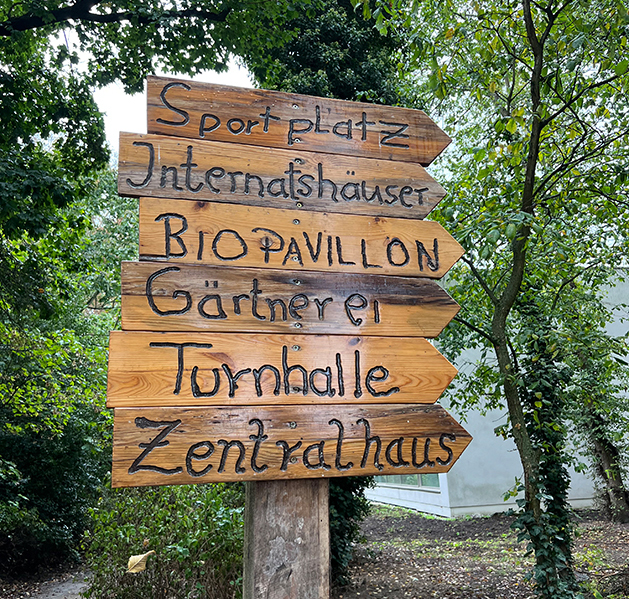 Sportplatz
Internatshäuser
BIOPAVILLON
Gärtnerei
Turnhalle
Zentralhaus